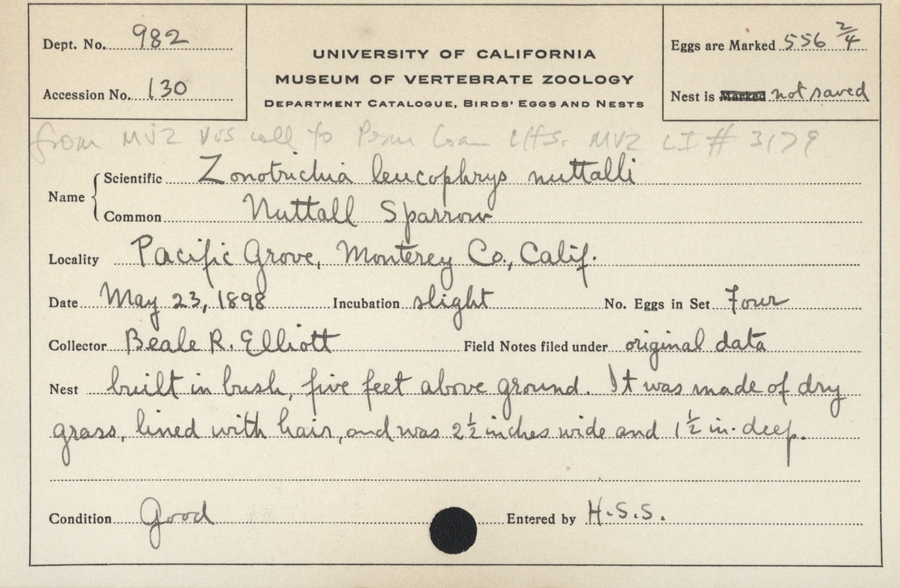 Dept. No. 982
Accession No. 130
UNIVERSITY OF CALIFORNIA
MUSEUM OF VERTEBRATE ZOOLOGY
DEPARTMENT CATALOGUE, BIRDS' EGGS AND NESTS
Eggs are Marked 556 2/4
Nest is Marked not saved
from MVZ to Perm Loan MVZ LI # 3179
Name
Scientific Zonotrichia leucophrys nuttalli
Common Nuttall Sparrow
Locality Pacific Grove, Monterey Co., Calif.
Date May 23, 1898 Incubation slight No. Eggs in Set Four
Collector Beale R. Elliott Field Notes filed under original data
Nest built in bush, five feet above ground. It was made of dry
grass, lined with hair, and was 2½ inches wide and 1½ in. deep.
Condition Good Entered by H.S.S.